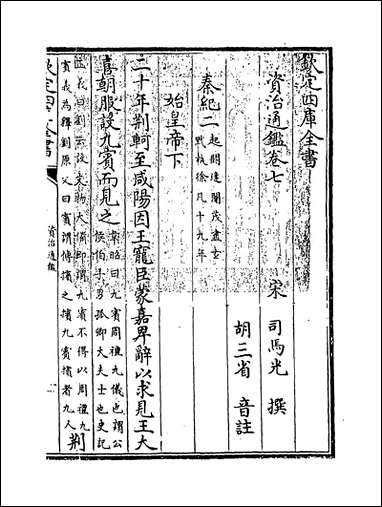 欽定四庫全書
資治通鑑卷七
宋 司馬光 撰
胡三省 音註
秦紀二 起閼逢閹茂盡玄
黓執徐凡十九年
始皇帝下
二十年荆軻至咸陽因王寵臣蒙嘉卑辭以求見王大
喜朝服設九賓而見之 韋昭曰九賓周禮九儀也謂公
侯伯子男孤卿大夫士也史記
正義曰劉云設文物大備即謂九賓不得以周禮九
賓義為釋劉原父曰賓謂傳擯之擯九賓擯者九人 荆
欽定四庫全書
資治通鑑